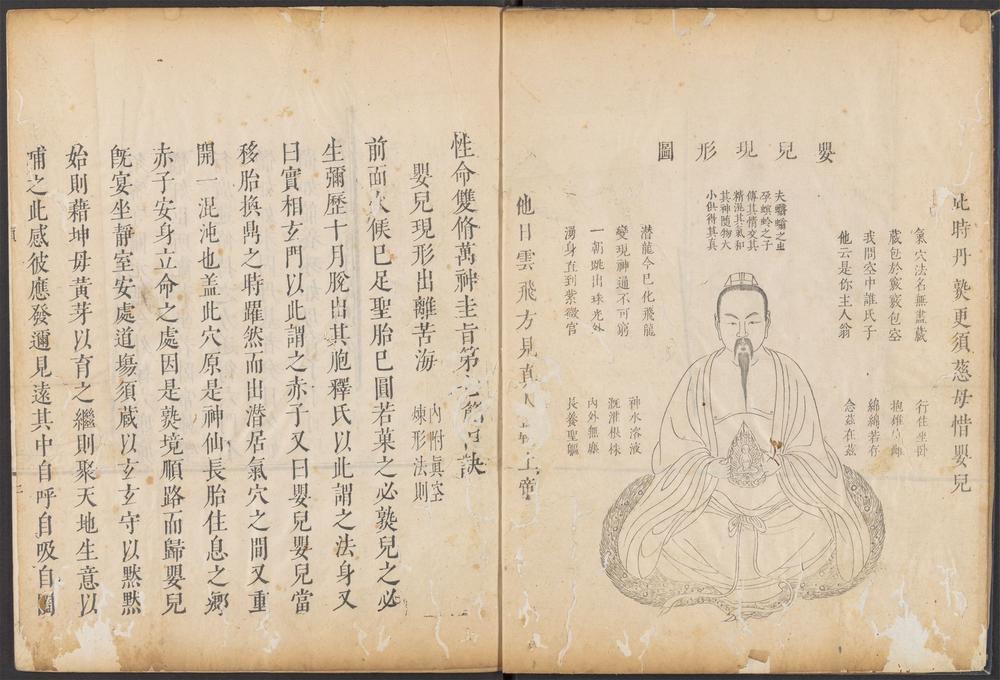 此時丹熟更須慈母惜嬰兒
嬰兒現形圖
氣穴法名無盡藏
藏包於竅竅包空
我問空中誰氏子
他云是你主人翁
行住坐卧
抱雄守雌
綿綿若存
念茲在茲
夫蠮螉之虫
孕螟蛉之子
傳其情交其
精混其氣和
其神隨物大
小俱得其真
潜龍今已化飛龍
變現神通不可窮
一朝跳出珠光外
湧身直到紫微宮
神水溶液
溉泄根株
内外無塵
長養聖軀
他日雲飛方見真人朝上帝
性命雙脩萬神圭旨第節口訣
嬰兒現形出離苦海 内附真空
煉形法則
前面火候已足聖胎已圓若菓之必熟兒之必
生彌歷十月脫出其胞釋氏以此謂之法身又
曰實相玄門以此謂之赤子又曰嬰兒嬰兒當
移胎換鼎之時躍然而出潜居氣穴之間又重
開一混沌也盖此穴原是神仙長胎住息之鄉
赤子安身立命之處因是熟境順路而歸嬰兒
旣宴坐靜室安處道塲須蔵以玄玄守以黙黙
始則藉坤毋黃芽以育之繼則聚天地生意以
哺之此感彼應發邇見遠其中自呼自吸自闔